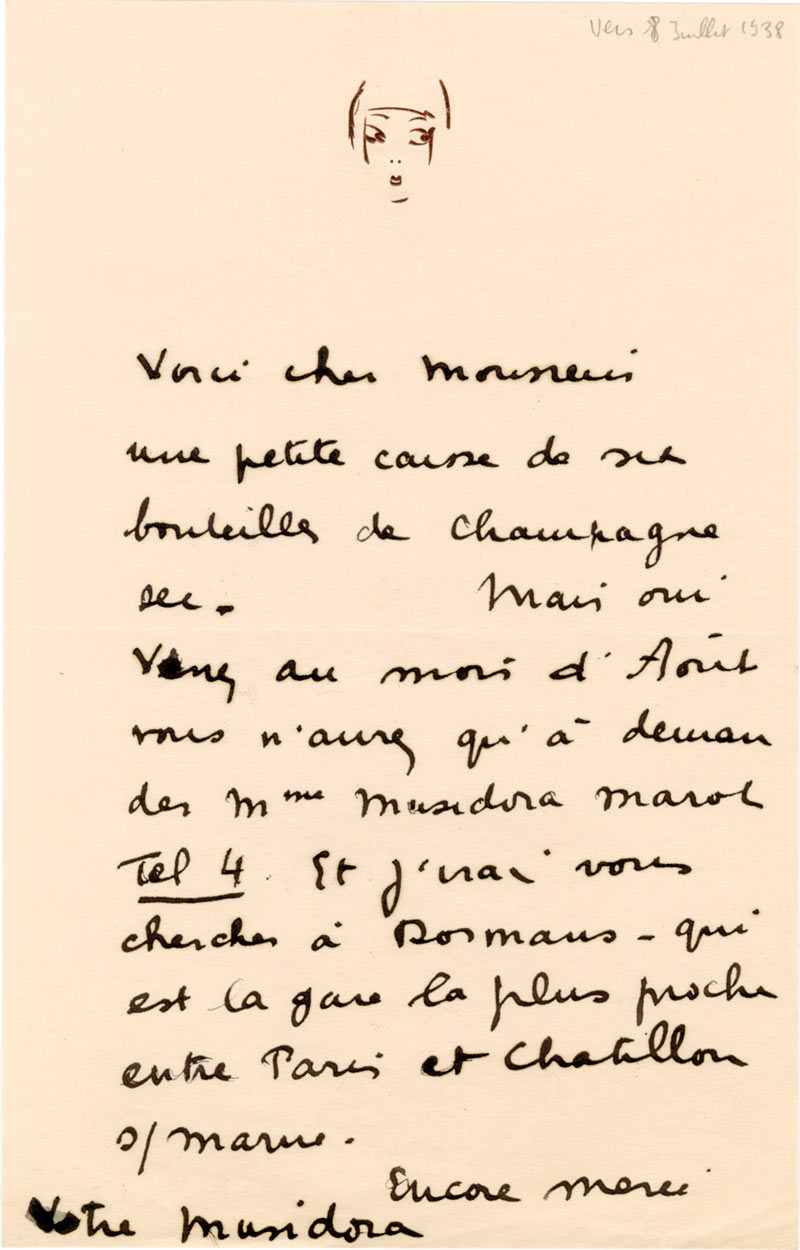 Vers 8 Juillet 1938
Voici cher Monsieur
une petite caisse de six
bouteilles de Champagne
sec. Mais oui
Venez au mois d'Août
vous n'aurez qu'à deman
der Mme Musidora Marot
Tel 4. Et j'irai vous
chercher à Dormans - qui
est la gare la plus proche
entre Paris et Chatillon
s/ Marne.
Encore merci
Votre Musidora